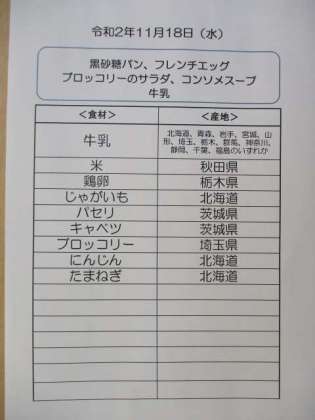 令和2年11月18日（水）
黒砂糖パン、フレンチエッグ
ブロッコリーのサラダ、コンソメスープ
牛乳
＜食材＞ ＜産地＞
牛乳 北海道、青森、岩手、宮城、山
形、埼玉、栃木、群馬、神奈川、
静岡、千葉、福島のいずれか
米 秋田県
鶏卵 栃木県
じゃがいも 北海道
パセリ 茨城県
キャベツ 茨城県
ブロッコリー 埼玉県
にんじん 北海道
たまねぎ 北海道